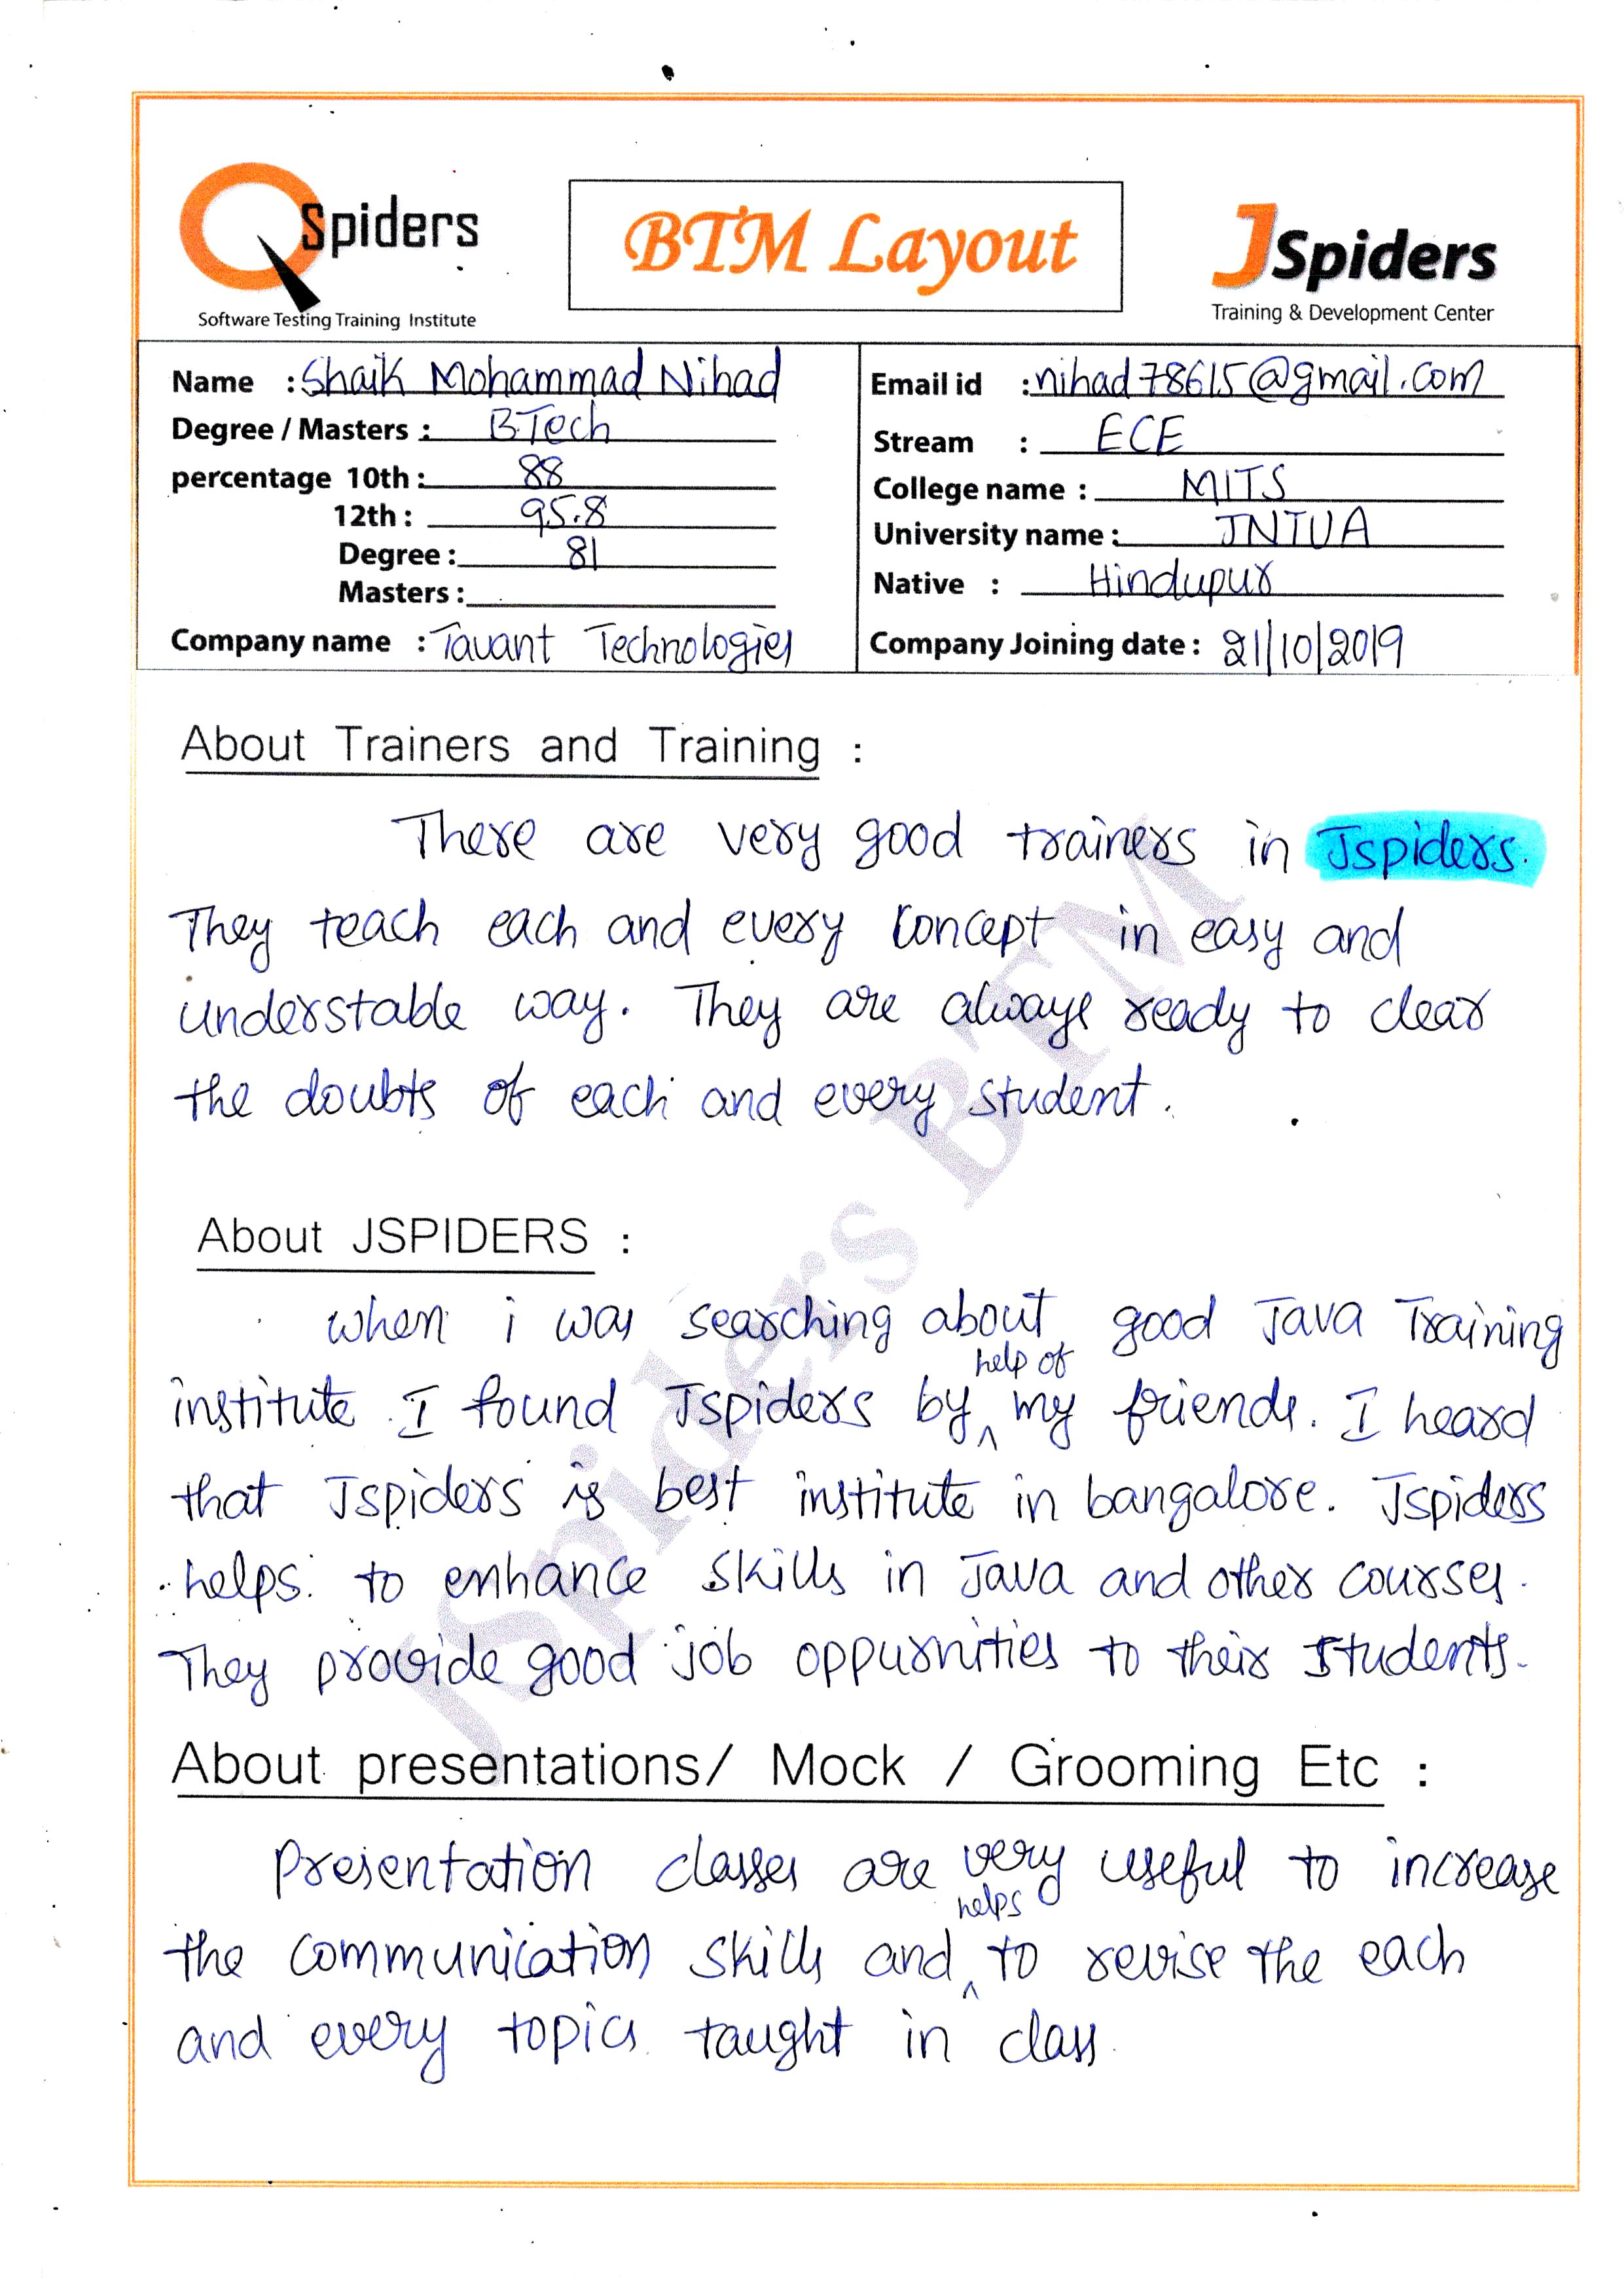 QSpiders
Software Testing Training Institute
BTM Layout
JSpiders
Training & Development Center
Name : Shaik Mohammad Nihad
Degree / Masters : B.Tech
percentage 10th : 88
12th : 95.8
Degree : 81
Masters :
Company name : Tavant Technologies
Email id : nihad78615@gmail.com
Stream : ECE
College name : MITS
University name : JNTUA
Native : Hindupur
Company Joining date : 21/10/2019
About Trainers and Training :
There are very good trainers in Jspiders.
They teach each and every concept in easy and
understable way. They are always ready to clear
the doubts of each and every student.
About JSPIDERS :
When i was searching about good Java Training
institute I found Jspiders by help of my friends. I heard
that Jspiders is best institute in bangalore. Jspiders
helps to enhance skills in Java and other courses.
They provide good job oppurnities to their students.
About presentations/ Mock / Grooming Etc :
Presentation classes are very useful to increase
the communication skills and helps to revise the each
and every topics taught in class.
JSpiders BTM